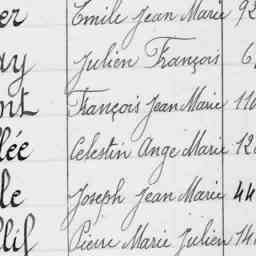 er Emile Jean Marie 92
ay Julien François 6
ont François Jean Marie 110
lée Celestin Ange Marie 12
le Joseph Jean Marie 44
llif Pierre Marie Julien 14